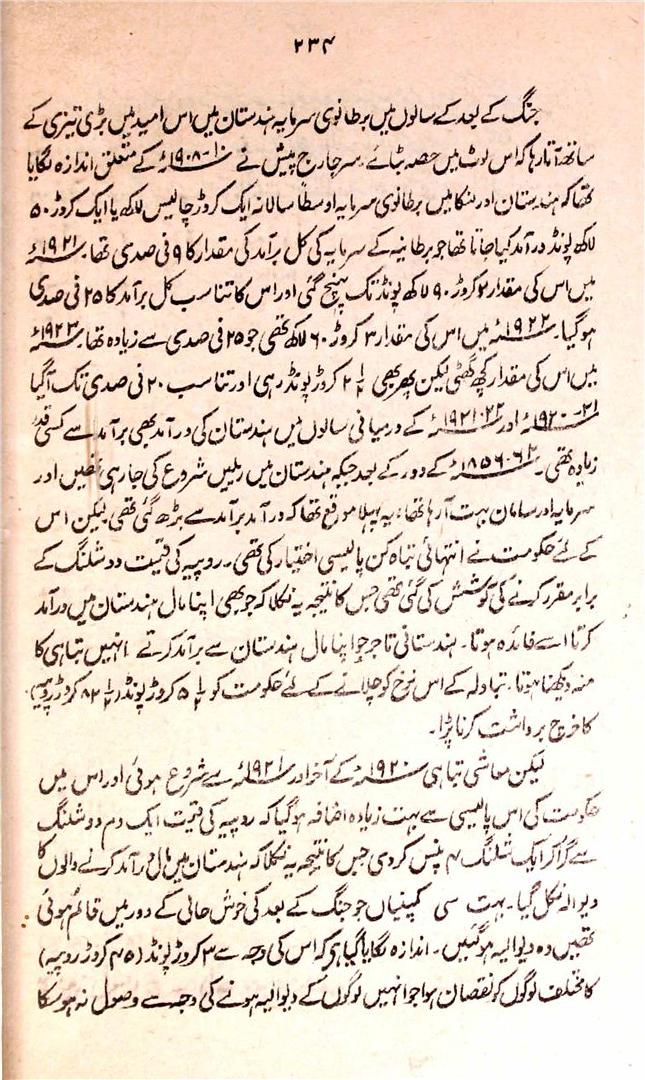 ۲۳۴
جنگ کے بعد کے سالوں میں برطانوی سرمایہ ہندستان میں اس امید میں بڑی تیزی کے
ساتھ آتا رہا کہ اس لوٹ میں حصہ بٹائے۔ سر جارج پیش نے ۱۰-۱۹۰۸ء کے متعلق اندازہ لگایا
تھا کہ ہندستان اور لنکا میں برطانوی سرمایہ اوسطاً سالانہ ایک کروڑ چالیس لاکھ یا ایک کروڑ ۵۰
لاکھ پونڈ درآمد کیا جاتا تھا جو برطانیہ کے سرمایہ کی کل برآمد کی مقدار کا ۹ فی صدی تھا۔ ۱۹۲۱ء
میں اس کی مقدار ۲ کروڑ ۹۰ لاکھ پونڈ تک پہنچ گئی اور اس کا تناسب کل برآمد کا ۲۵ فی صدی
ہوگیا۔ ۱۹۲۲ء میں اس کی مقدار ۳ کروڑ ۶۰ لاکھ تھی جو ۲۵ فی صدی سے زیادہ تھا۔ ۱۹۲۳ء
میں اس کی مقدار کچھ گھٹی لیکن پھر بھی ۲ ۱/۲ کروڑ پونڈ رہی اور تناسب ۲۰ فی صدی تک آگیا
۲۱-۱۹۲۰ء اور ۲۲-۱۹۲۱ء کے درمیانی سالوں میں ہندستان کی درآمد بھی برآمد سے کسی قدر
زیادہ تھی۔ ۶۲-۱۸۵۶ء کے دور کے بعد جبکہ ہندستان میں ریلیں شروع کی جا رہی تھیں اور
سرمایہ اور سامان بہت آرہا تھا، یہ پہلا موقع تھا کہ درآمد برآمد سے بڑھ گئی تھی لیکن اس
کے لئے حکومت نے انتہائی تباہ کن پالیسی اختیار کی تھی۔ روپیہ کی قیمت دو شلنگ کے
برابر مقرر کرنے کی کوشش کی گئی تھی جس کا نتیجہ یہ نکلا کہ جو بھی اپنا مال ہندستان میں درآمد
کرتا اسے فائدہ ہوتا۔ ہندستانی تاجر جو اپنا مال ہندستان سے برآمد کرتے انہیں تباہی کا
منہ دیکھنا ہوتا۔ تبادلہ کے اس نرخ کو چلانے کے لئے حکومت کو ۵ ۱/۲ کروڑ پونڈ (۸۲ ۱/۲ کروڑ روپیہ)
کا خرچ برداشت کرنا پڑا۔
لیکن معاشی تباہی ۱۹۲۰ء کے آخر اور ۱۹۲۱ء سے شروع ہوئی اور اس میں
حکومت کی اس پالیسی سے بہت زیادہ اضافہ ہوگیا کہ روپیہ کی قیمت ایک دم دو شلنگ
سے گرا کر ایک شلنگ ۴ پنس کر دی جس کا نتیجہ یہ نکلا کہ ہندستان میں مال درآمد کرنے والوں کا
دیوالہ نکل گیا۔ بہت سی کمپنیاں جو جنگ کے بعد کی خوش حالی کے دور میں قائم ہوئی
تھیں وہ دیوالیہ ہوگئیں۔ اندازہ لگایا گیا ہے کہ اس کی وجہ سے ۳ کروڑ پونڈ (۴۵ کروڑ روپیہ)
کا مختلف لوگوں کو نقصان ہوا جو انہیں لوگوں کے دیوالیہ ہونے کی وجہ سے وصول نہ ہو سکا